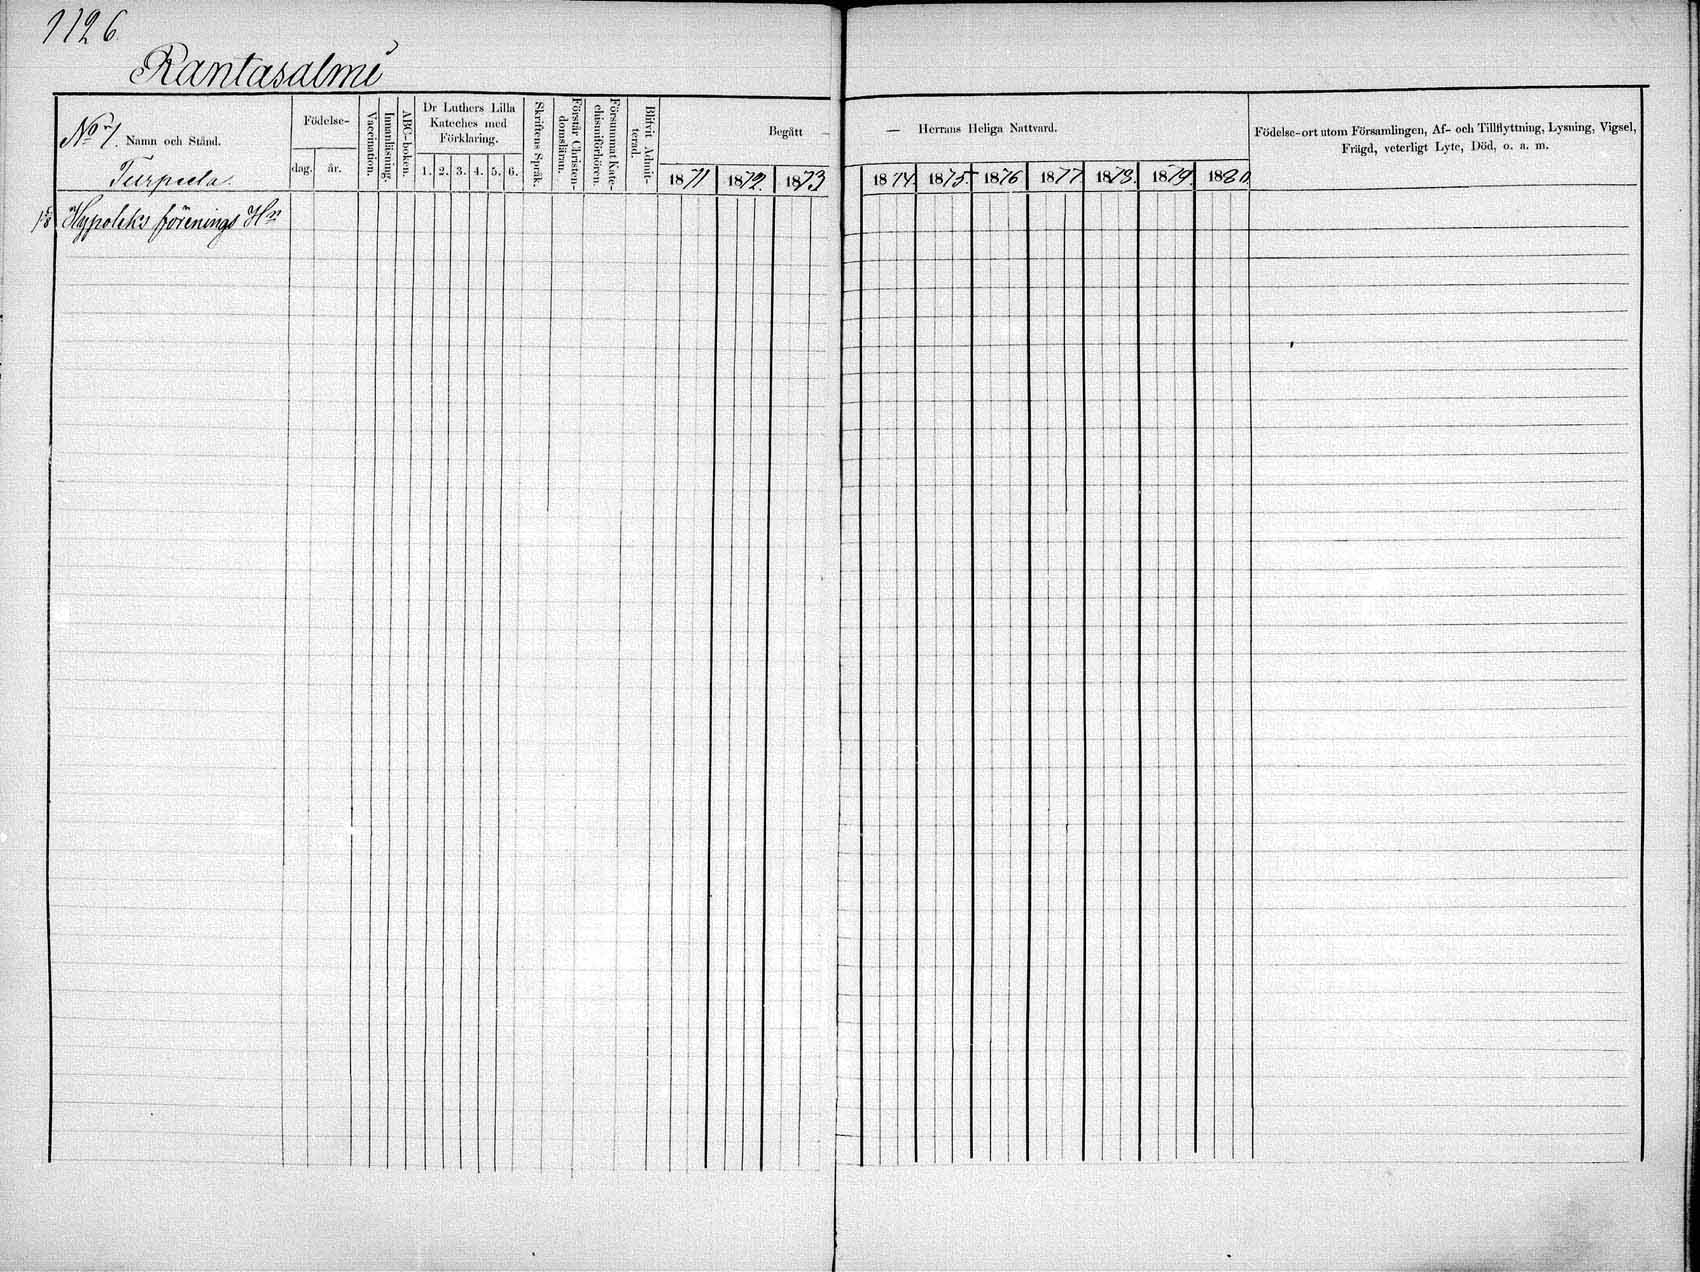 1126.
Rantasalmi
No 7. Namn och Stånd.
Turpeela.
Födelse-
dag. år.
Vaccination.
Innanläsning.
ABC-boken.
Dr Luthers Lilla
Kateches med
Förklaring.
1. 2. 3. 4. 5. 6.
Skriftens Språk.
Förstår Christen-
domsläran.
Försummat Kate-
chismiförhören.
Blifvit Admit-
terad.
Begått —
1871 1872. 1873
— Herrans Heliga Nattvard.
1874. 1875. 1876 1877 1878. 1879. 1880
Födelse-ort utom Församlingen, Af- och Tillflyttning, Lysning, Vigsel,
Frägd, veterligt Lyte, Död, o. a. m.
Hypoteks förenings Hn